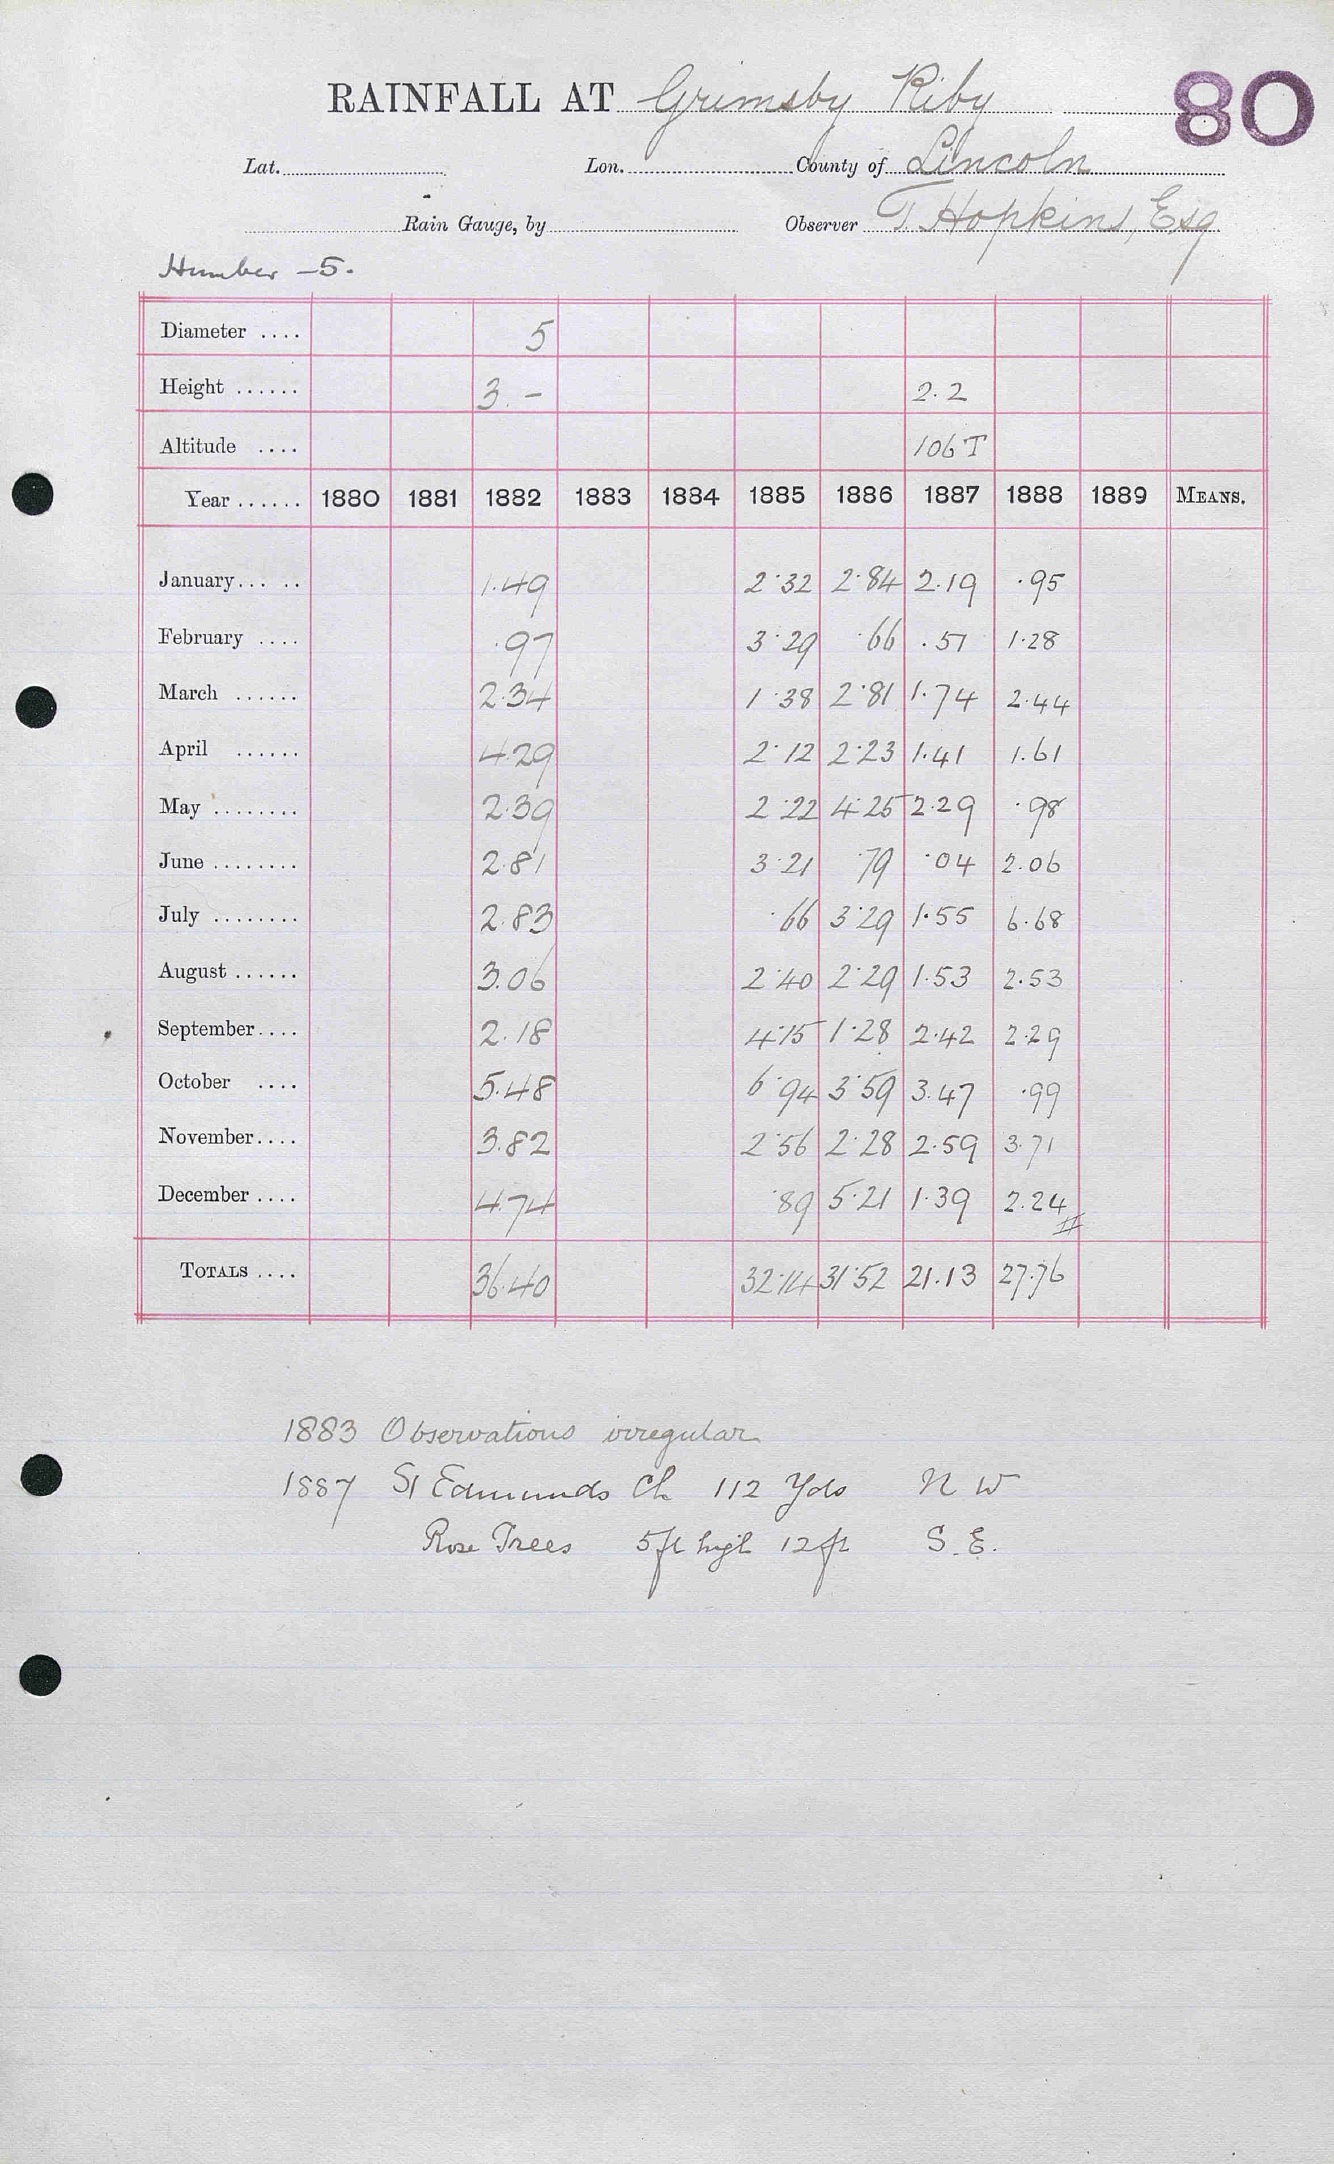 RAINFALL AT Grimsby Riby 80
Lat. Lon. County of Lincoln
Rain Gauge, by Observer T. Hopkins, Esq
Humber - 5.
Diameter .... 5
Height ...... 3. - 2.2
Altitude .... 106 T
Year ...... 1880 1881 1882 1883 1884 1885 1886 1887 1888 1889 MEANS.
January... .. 1.49 2.32 2.84 2.19 .95
February .... .97 3.29 .66 .51 1.28
March ...... 2.34 1.38 2.81 1.74 2.44
April ...... 4.29 2.12 2.23 1.41 1.61
May ........ 2.39 2.22 4.25 2.29 .98
June ........ 2.81 3.21 .79 .04 2.06
July ........ 2.83 .66 3.29 1.55 6.68
August ...... 3.06 2.40 2.29 1.53 2.53
September.... 2.18 4.15 1.28 2.42 2.29
October .... 5.48 6.94 3.59 3.47 .99
November.... 3.82 2.56 2.28 2.59 3.71
December .... 4.74 .89 5.21 1.39 2.24
TOTALS .... 36.40 32.14 31.52 21.13 27.76
1883 Observations irregular
1887 St Edmunds Ch 112 Yds N W
Rose Trees 5 ft high 12 ft S. E.